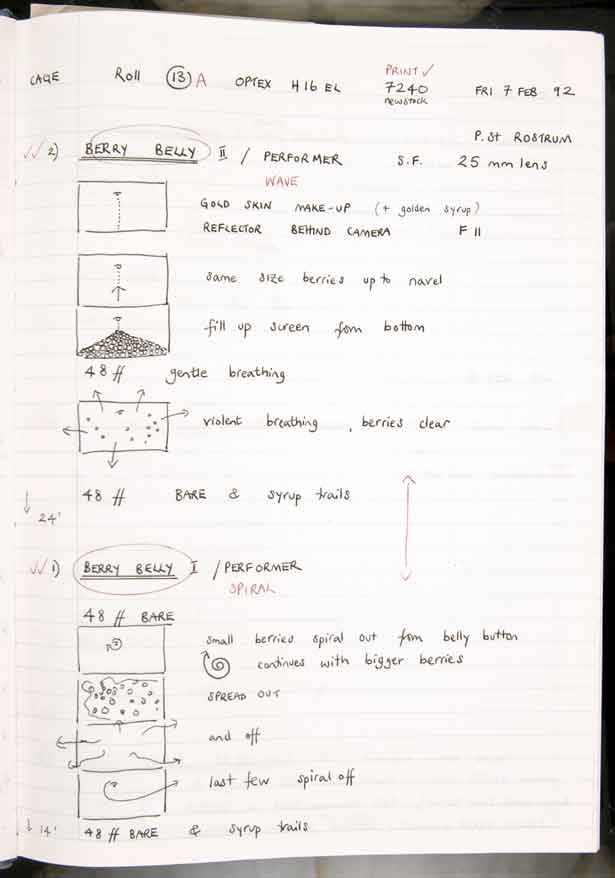 PRINT ✓
CAGE Roll 13 A OPTEX H16 EL 7240 FRI 7 FEB 92
newstock
P. St ROSTRUM
✓✓ 2) BERRY BELLY II / PERFORMER S.F. 25 mm lens
WAVE
GOLD SKIN MAKE-UP (+ golden syrup)
REFLECTOR BEHIND CAMERA F 11
same size berries up to navel
fill up screen from bottom
48 ff gentle breathing
violent breathing, berries clear
48 ff BARE & syrup trails
↓ 24'
✓✓ 1) BERRY BELLY I / PERFORMER
SPIRAL
48 ff BARE
small berries spiral out from belly button
continues with bigger berries
SPREAD OUT
and off
last few spiral off
↓ 14' 48 ff BARE & syrup trails